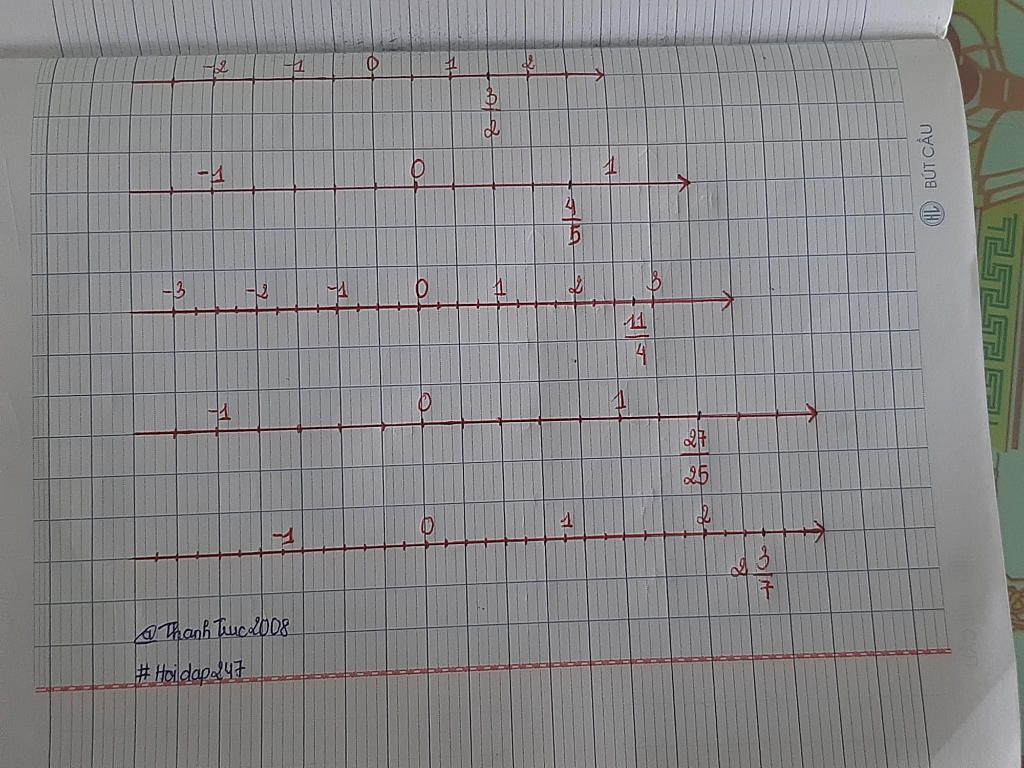 -2 -1 0 1 2
3/2
-1 0 1
4/5
-3 -2 -1 0 1 2 3
11/4
-1 0 1
27/25
-1 0 1 2
2 3/7
@ThanhTruc2008
#Hoidap247
HL BÚT CÂU